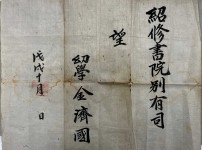 紹修書院別有司
望
幼學金濟國
戊戌十月　日